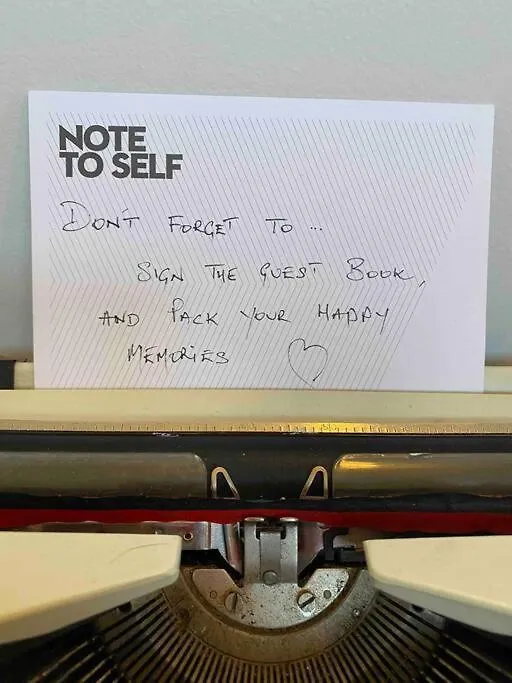 NOTE
TO SELF
DON'T FORGET TO ...
SIGN THE GUEST BOOK,
AND PACK YOUR HAPPY
MEMORIES ♡